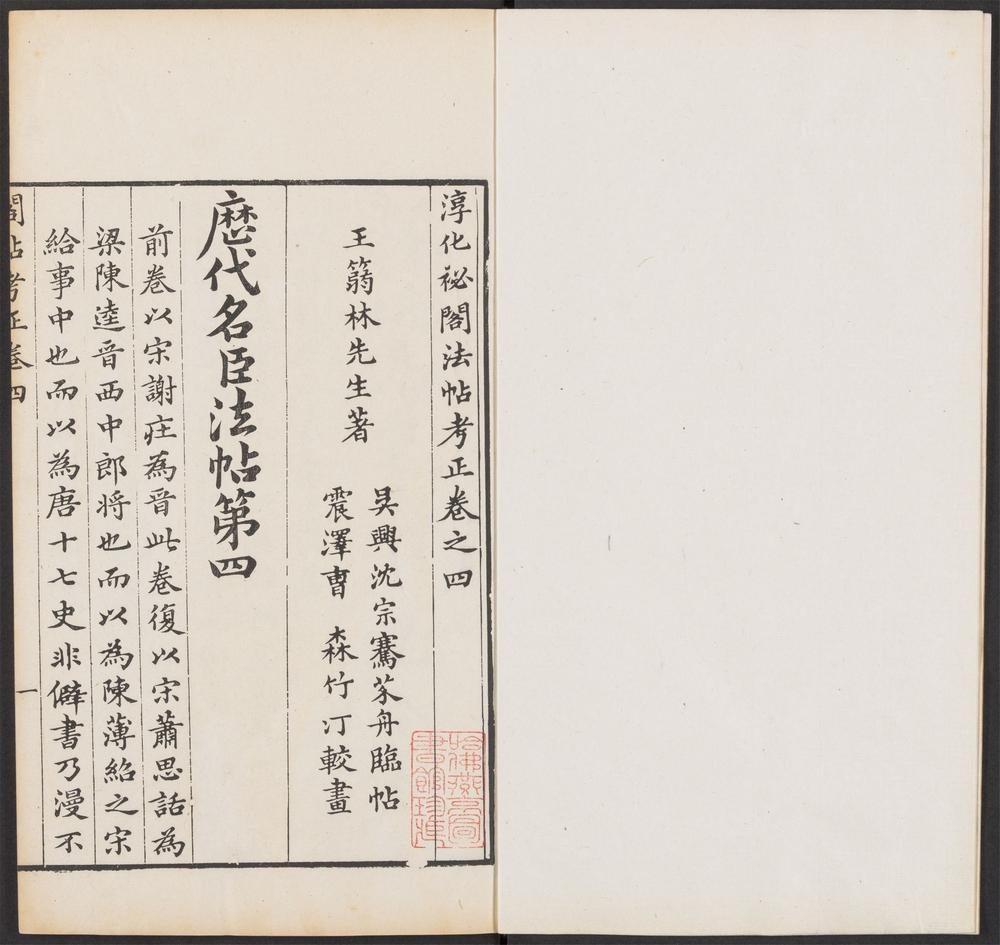 淳化祕閣法帖考正卷之四
王篛林先生著
吳興沈宗騫芥舟臨帖
震澤曺 森竹汀較畫
歷代名臣法帖第四
前卷以宋謝莊為晉此卷復以宋蕭思話為
梁陳逵晉西中郎將也而以為陳薄紹之宋
給事中也而以為唐十七史非僻書乃漫不
閣帖考正卷四
一
哈佛燕京
書館珍